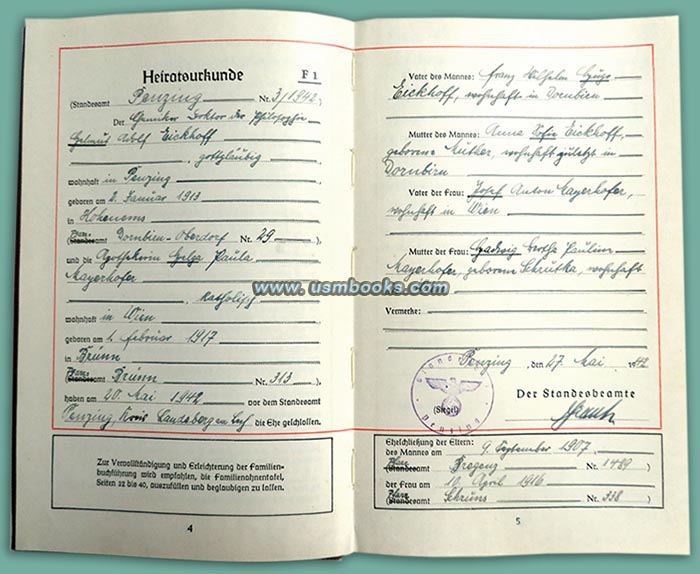 Heiratsurkunde F 1
(Standesamt Penzing Nr. 3/1942)
Der Chemiker Doktor der Philosophie
Helmut Adolf Eickhoff
, gottgläubig
wohnhaft in Penzing
geboren am 8. Januar 1913
in Hohenems
(Standesamt Dornbirn-Oberdorf Nr. 29),
und die Apothekerin Helga Paula
Mayerhofer
, katholisch
wohnhaft in Wien
geboren am 1. Februar 1917
in Brünn
(Standesamt Brünn Nr. 313)
haben am 20. Mai 1942 vor dem Standesamt
Penzing, Kreis Landsberg am Lech die Ehe geschlossen.
Zur Vervollständigung und Erleichterung der Familien-
buchführung wird empfohlen, die Familienahnentafel,
Seiten 22 bis 40, auszufüllen und beglaubigen zu lassen.
4
Vater des Mannes: Franz Wilhelm Hugo
Eickhoff, wohnhaft in Dornbirn
Mutter des Mannes: Anna Sofie Eickhoff,
geborene Mutter, wohnhaft zuletzt in
Dornbirn
Vater der Frau: Josef Anton Mayerhofer,
wohnhaft in Wien
Mutter der Frau: Hedwig Pauline
Mayerhofer, geborene Schrutka, wohnhaft
Vermerke:
Penzing, den 27. Mai 1942
Der Standesbeamte
(Siegel)
Penzing
Eheschließung der Eltern:
des Mannes am 9. September 1907
(Pfarramt Bregenz Nr. 1489)
der Frau am 10. April 1916
(Pfarramt Schruns Nr. 338)
5
www.usmbooks.com